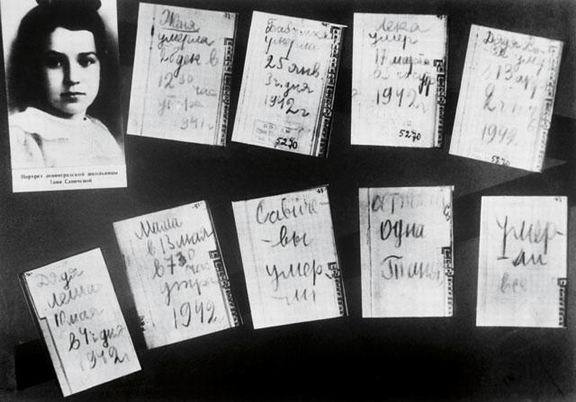 Портрет ленинградской школьницы
Тани Савичевой
Женя
умерла
28 дек в
12 30 час
утра
1941 г
Бабушка
умерла
25 янв
3 ч дня
1942 г
5270
Лека
умер
17 марта
в 5 час утр
1942 г
5270
Дядя
умер
13 апр
2 ч
1942
5270
Дядя
Леша
10 мая
в 4 ч дня
1942 г
Мама
в 13 мая
в 7 30 час
утра
1942
Савиче
-вы
умер
-ли
осталась
одна
Таня
умер
-ли
все